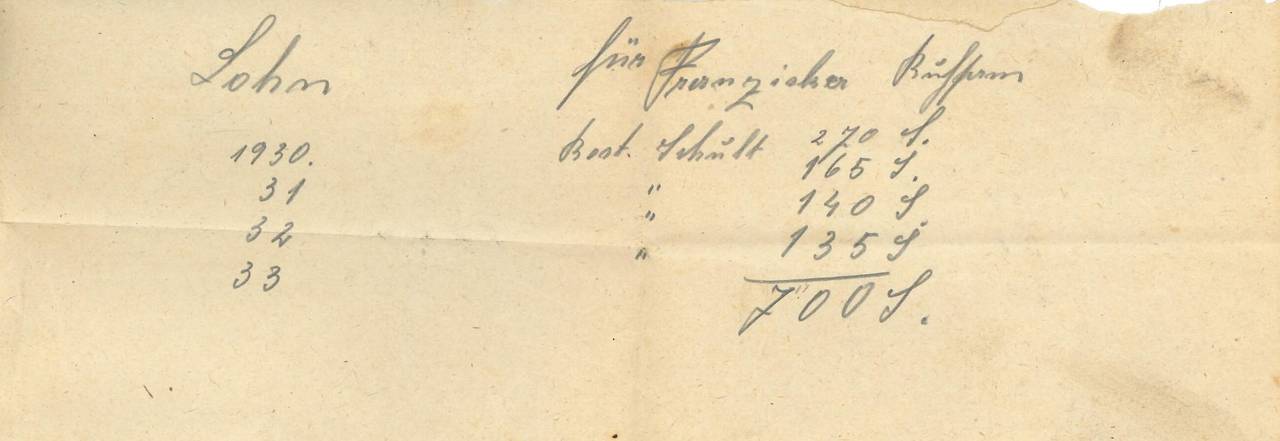 Lohn für Franziska
1930. Rest. Schult 270 S.
31 " 165 S.
32 " 140 S.
33 " 135 S
700 S.